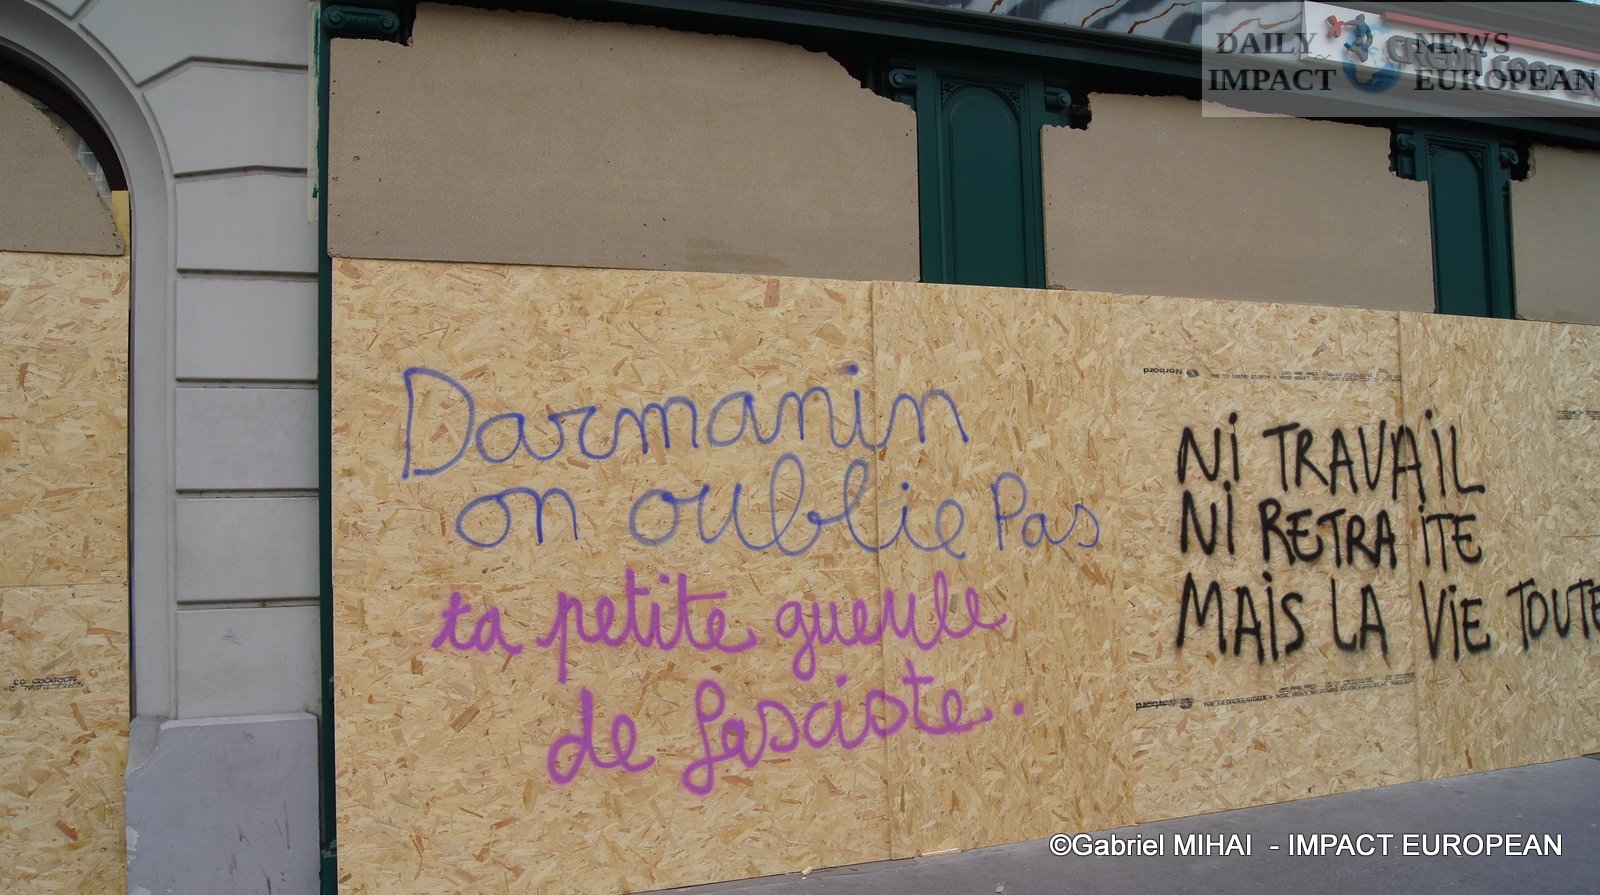 DAILY NEWS
IMPACT EUROPEAN
CREDIT COOP
Darmanin
on oublie Pas
ta petite gueule
de fasciste.
Ni TRAVAiL
Ni RETRAiTE
MAiS LA ViE TOUTE
Norbord
Norbord
©Gabriel MIHAI - IMPACT EUROPEAN